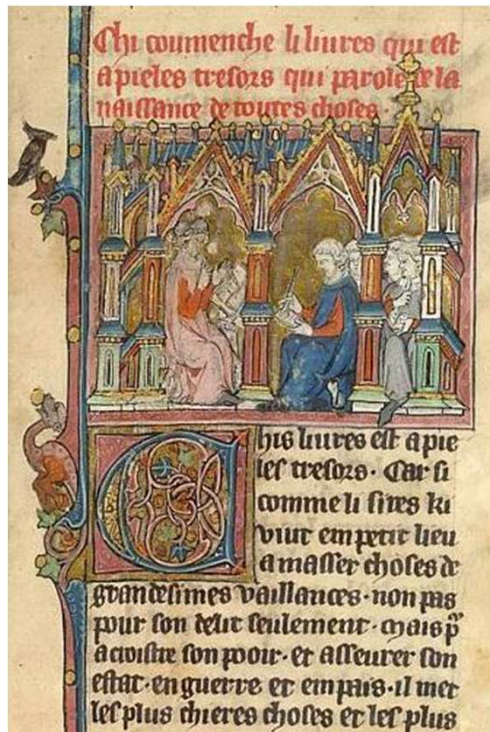 Chi coumenche li liures qui est
apieles tresors qui parole de la
naissance de toutes choses.
Chis liures est apie
les tresors. Car si
comme li sires ki
viut em petit lieu
amasser choses de
grandesimes vaillances. non pas
pour son delit seulement. mais p
acroistre son pooir. et asseurer son
estat. en guerre et em pais. il met
les plus chieres choses et les plus